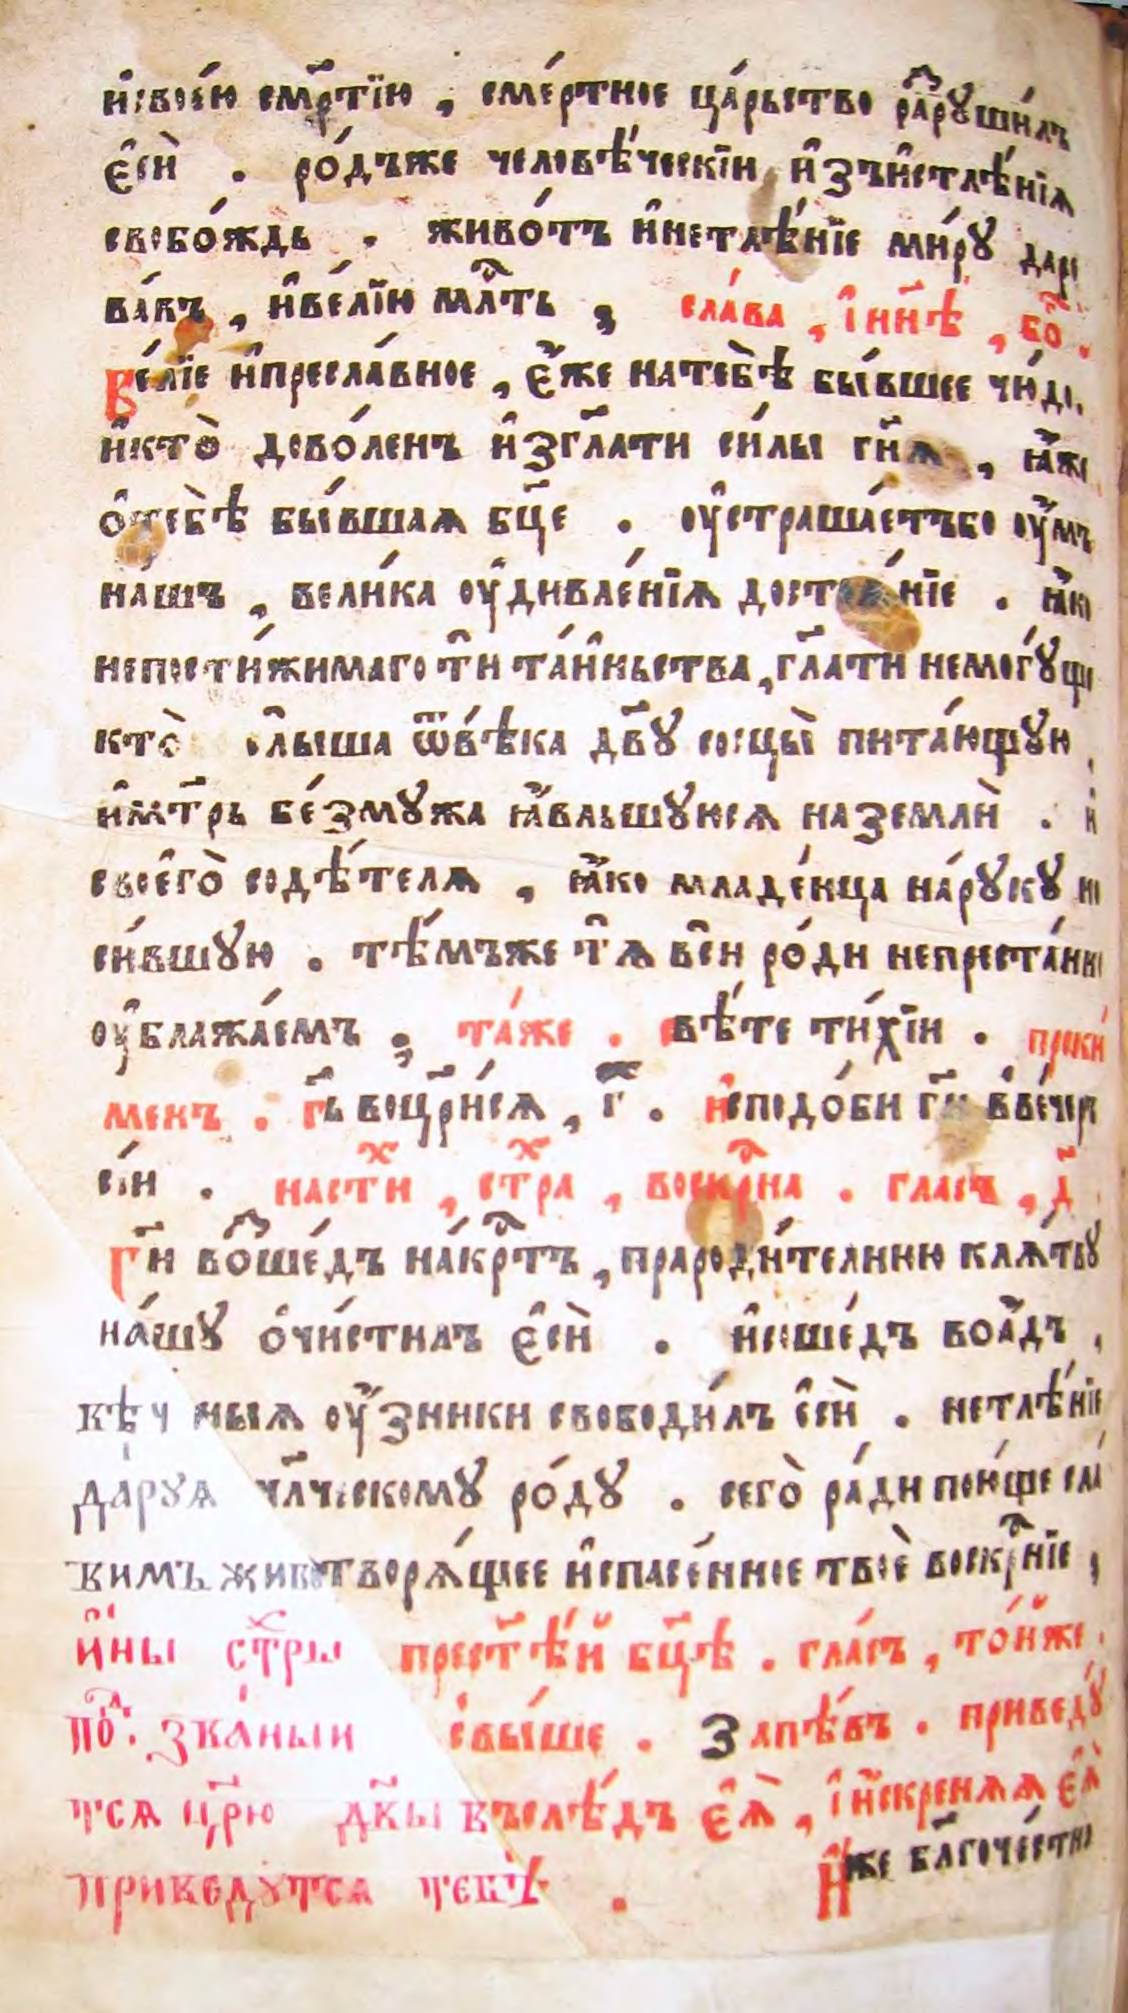 и҆своею смр҃тїю , сме́ртное ца́рьство раꙁрꙋши́лъ
є҆сѝ . ро́дъже человѣ́ческїи и҆зъи҆стлѣ́нїѧ
свобо́ждь . живо́тъ и҆нетлѣ́нїе ми́рꙋ даро
ва́въ , и҆ве́лїю млⷭ҇ть , сла́ва , і҆ нн҃ѣ , боⷢ҇ .
ве́лїе и҆пресла́вное , є҆́же натебѣ̀ бы́вшее чю́до .
и҆кто̀ дово́ленъ и҆згл҃ати си́лы гн҃ѧ , ꙗ҆́же
ѻ҆тебѣ̀ бы́вшаѧ бц҃е . оу҆страша́етъбо оу҆́мъ
на́шъ , вели́ка оу҆дивле́нїѧ достоѧ́нїе . ꙗ҆́ко
непости́жимаго ти҆ та́иньства , гл҃ати немогꙋ́ще
кто̀ слы́ша ѿвѣ́ка дв҃ꙋ сосцы̀ пита́ющꙋю ,
и҆мт҃рь бе́змꙋжа ꙗ҆́вльшꙋюсѧ наземлѝ . и҆
своего̀ содѣ́телѧ , ꙗ҆́ко младе́нца на́рꙋкꙋ но
си́вшꙋю . тѣ́мъже тѧ̀ вси̂ ро́ди непреста́нно
оу҆блажа́емъ . та́же . свѣ́те ти́хїи . проки́
менъ . гь҃ воцр҃и́сѧ , г҃ . и҆сподо́би гн҃ в ве́черъ
сі́и . насти́хⷯ , стр҃аⷯ , воскрⷭ҇на . гласъ , д҃
гн҃ воⷥше́дъ на́крⷭ҇тъ , прароди́телнюю клѧ́твꙋ
на́шꙋ ѻ҆чи́стилъ є҆сѝ . и҆сшедъ воа҆́дъ ,
вѣ́чныѧ оу҆́зники свободи́лъ є҆сѝ . нетлѣ́нїе
да́рꙋѧ чл҃ческомꙋ ро́дꙋ . сего̀ ра́ди пою́ще сла́
вимъ животворѧ́щее и҆спасе́нное твоѐ воскрⷭ҇нїе ,
и҆́ны стр҃ыⷯ прест҃ѣ́й бц҃ѣ . гла́съ , то́йже .
поⷣ . зва́ныи свы́ше . запѣ́въ . приведꙋ́
тсѧ цр҃ю дв҃ы въслѣ́дъ є҆ѧ̀ , і҆ и҆́скренѧѧ є҆ѧ̀
приведꙋтсѧ тебѣ̀ . и҆́же бл҃гоче́стно